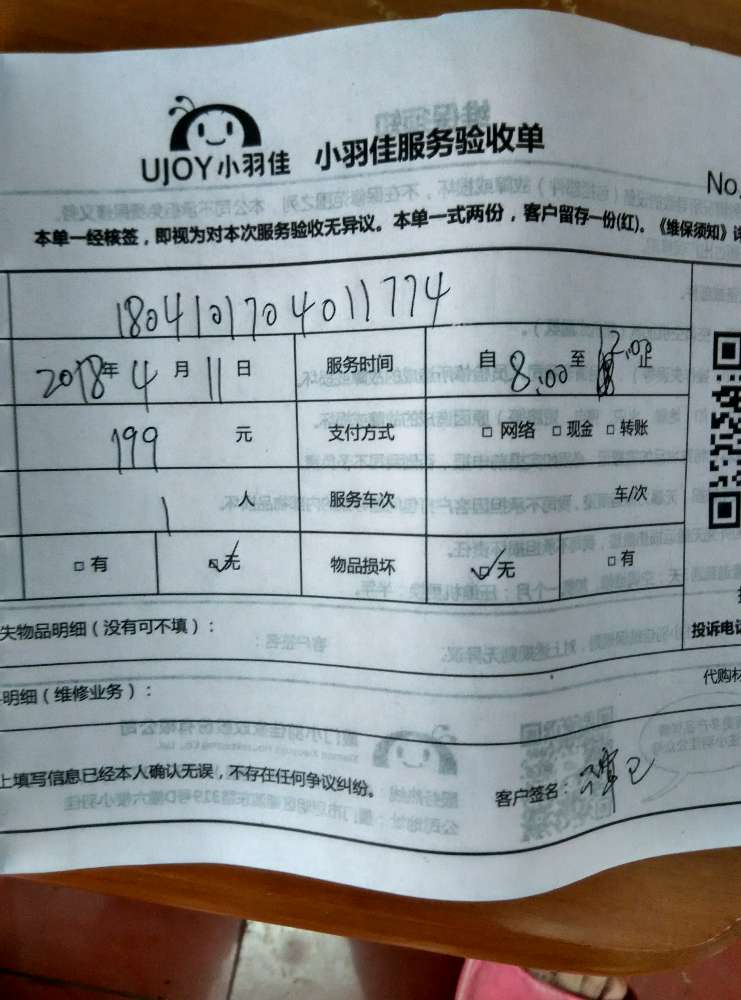 UJOY小羽佳 小羽佳服务验收单
No.
本单一经核签，即视为对本次服务验收无异议。本单一式两份，客户留存一份(红)。《维保须知》详
180410170401 1774
2018年 4 月 11 日 服务时间 自 8:00 至 12:00 止
199 元 支付方式 □ 网络 □ 现金 □ 转账
1 人 服务车次 车/次
□ 有 ☑ 无 物品损坏 ☑ 无 □ 有
失物品明细（没有可不填）： 投诉电话
明细（维修业务）： 代购材
上填写信息已经本人确认无误，不存在任何争议纠纷。 客户签名：